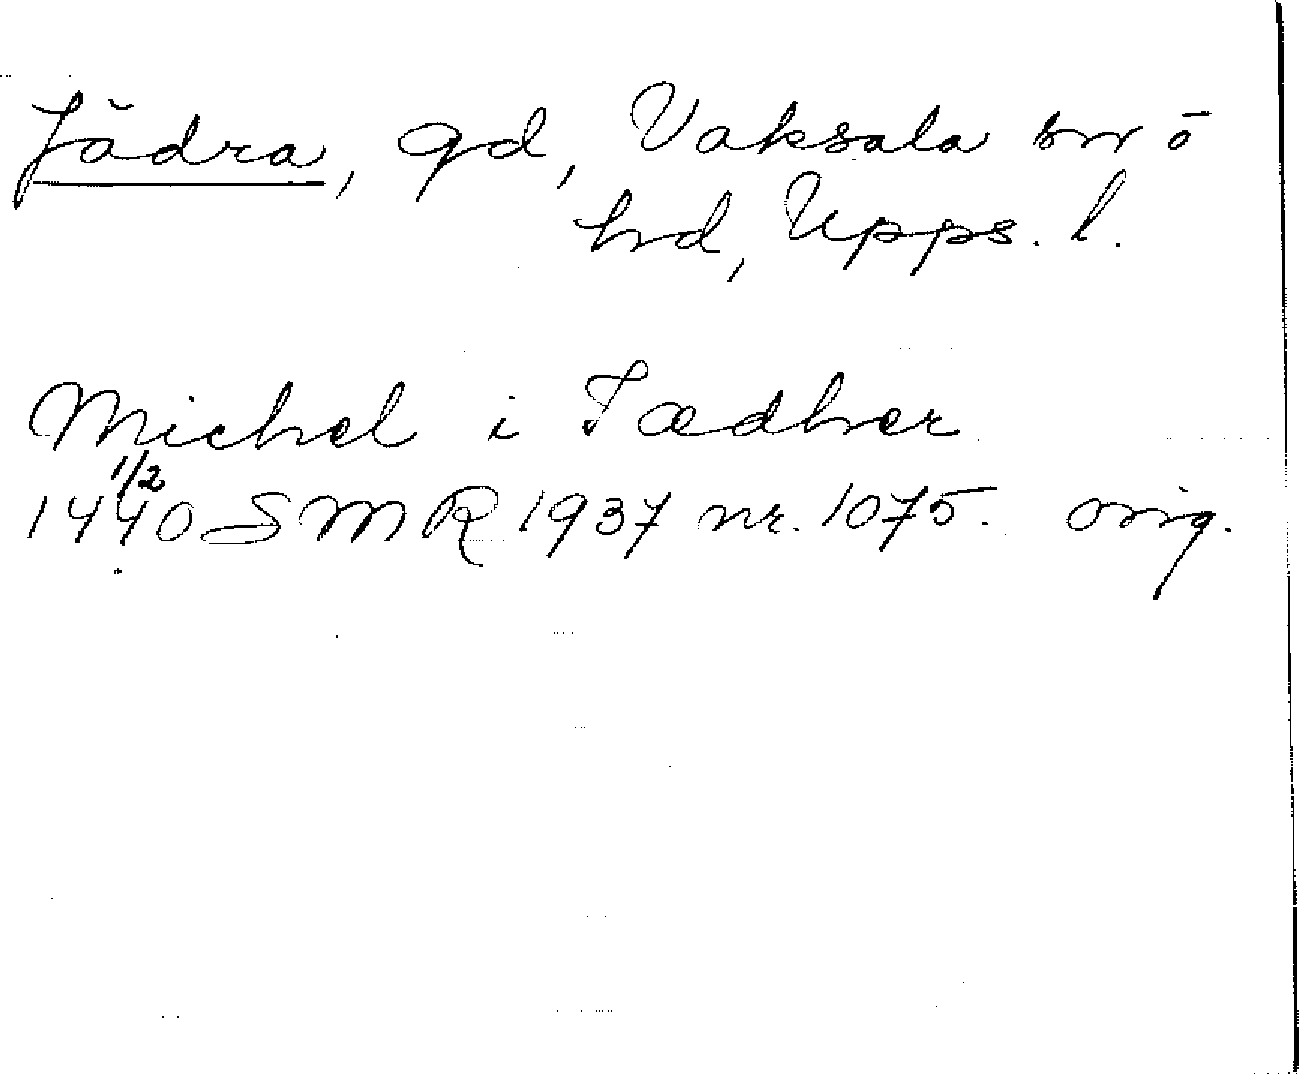 Jädra, gd, Vaksala sn o
hd, Upps. l.
Michel i Iædher
1440 1/2 SMR 1937 nr. 1075. orig.